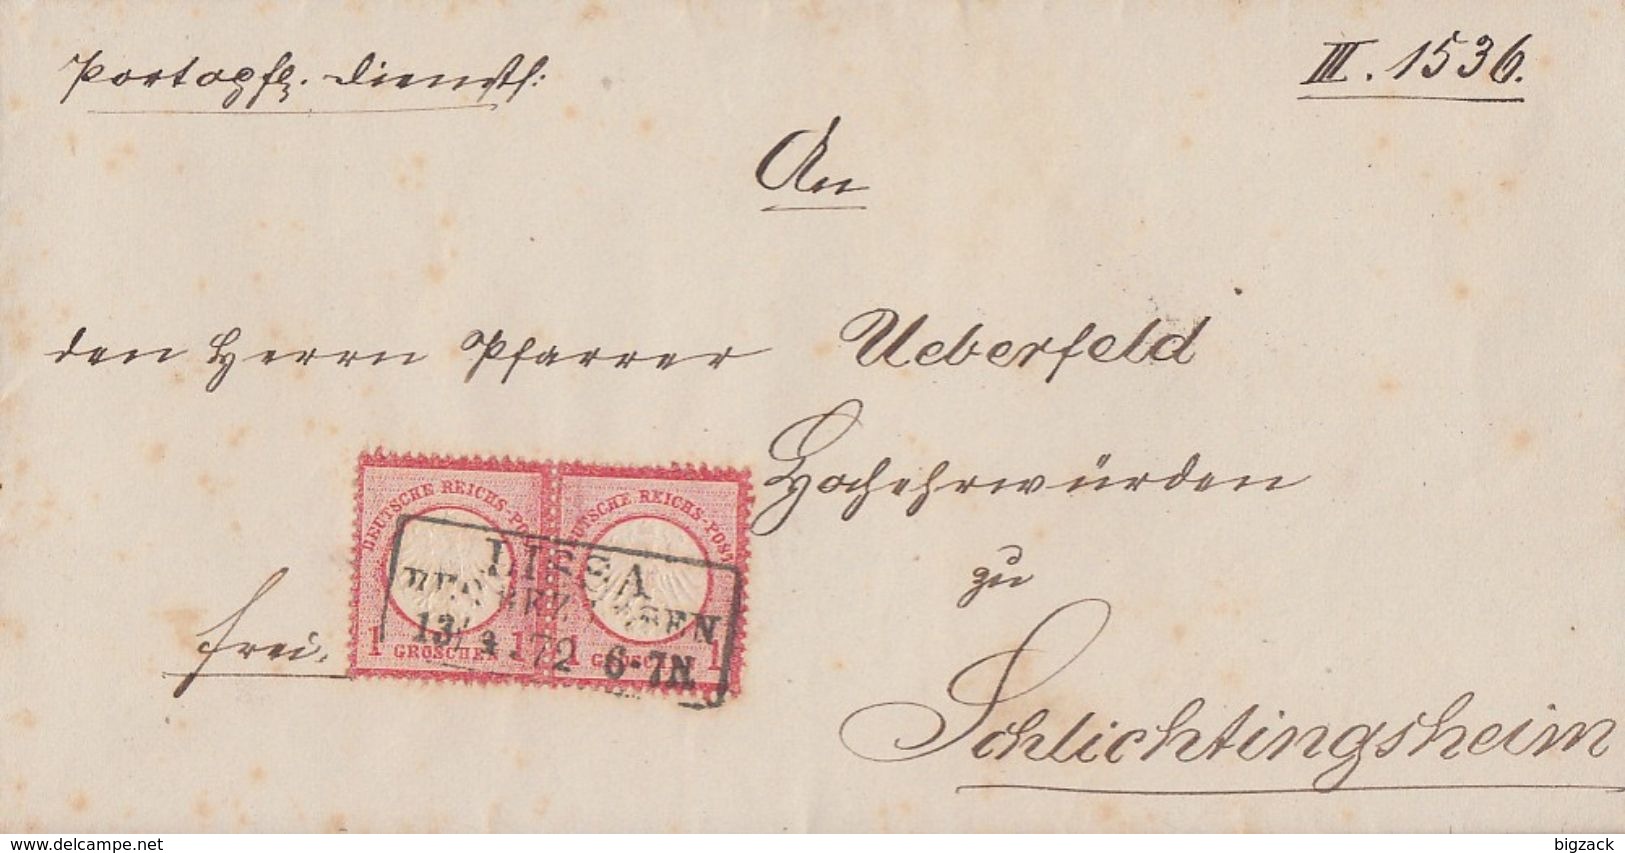 Portopfl. Diensts:
III. 1536.
An
den Herrn Pfarrer Ueberfeld
Hochehrwürden
zu
Schlichtingsheim
frei.
DEUTSCHE REICHS-POST
DEUTSCHE REICHS-POST
LISSA
REG. BEZ. POSEN
13/4 72 6-7N
1 GROSCHEN 1
1 GROSCHEN 1
delcampe.net
bigzack